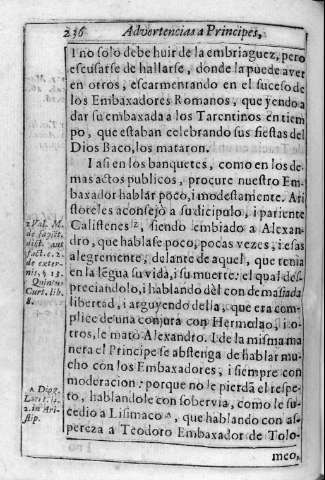 236 Advertencias a Principes,
I no solo debe huir de la embriaguez, pero
escusarse de hallarse, donde la puede aver
en otros, escarmentando en el suceso de
los Embaxadores Romanos, que yendo a
dar su embaxada a los Tarentinos en tiem
po, que estaban celebrando sus fiestas del
Dios Baco, los mataron.
I asi en los banquetes, como en los de-
mas actos publicos, procure nuestro Em-
baxador hablar poco, i modestamente. Ari
stoteles aconsejò a su dicipulo, i pariente
Calistenes z, siendo embiado a Alexan-
dro, que hablase poco, pocas vezes, i esas
alegremente, delante de aquel, que tenia
en la lẽgua su vida, i su muerte: el qual des-
preciandolo, i hablando dèl con demasiada
libertad, i arguyendo della, que era com-
plice de una conjura con Hermolao, i o-
tros, le matò Alexandro. I de la misma ma
nera el Principe se abstenga de hablar mu-
cho con los Embaxadores, i siempre con
moderacion: porque no le pierdã el respe-
to, hablandole con sobervia, como le su-
cedio a Lisimaco a, que hablando con as-
pereza a Teodoro Embaxador de Tolo-
meo,
z Val. M.
de sapiẽt.
dict. aut
fact. c. 2.
de exter-
nis, § 13.
Quintus
Curt. lib.
8.
a Diog.
Laert. li.
2. in Ari-
stip.